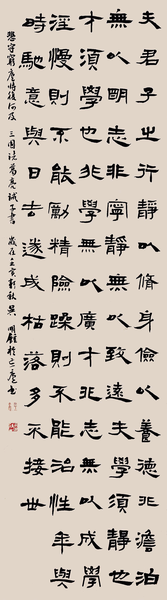 夫君子之行靜以脩身儉以養德非澹泊
無以明志非寧靜無以致遠夫學須靜也
才須學也非學無以廣才非志無以成學
淫慢則不能勵精險躁則不能治性年與
時馳意與日去遂成枯落多不接世
悲守窮廬將復何及 三國諸葛亮誡子書 歲在壬寅初秋